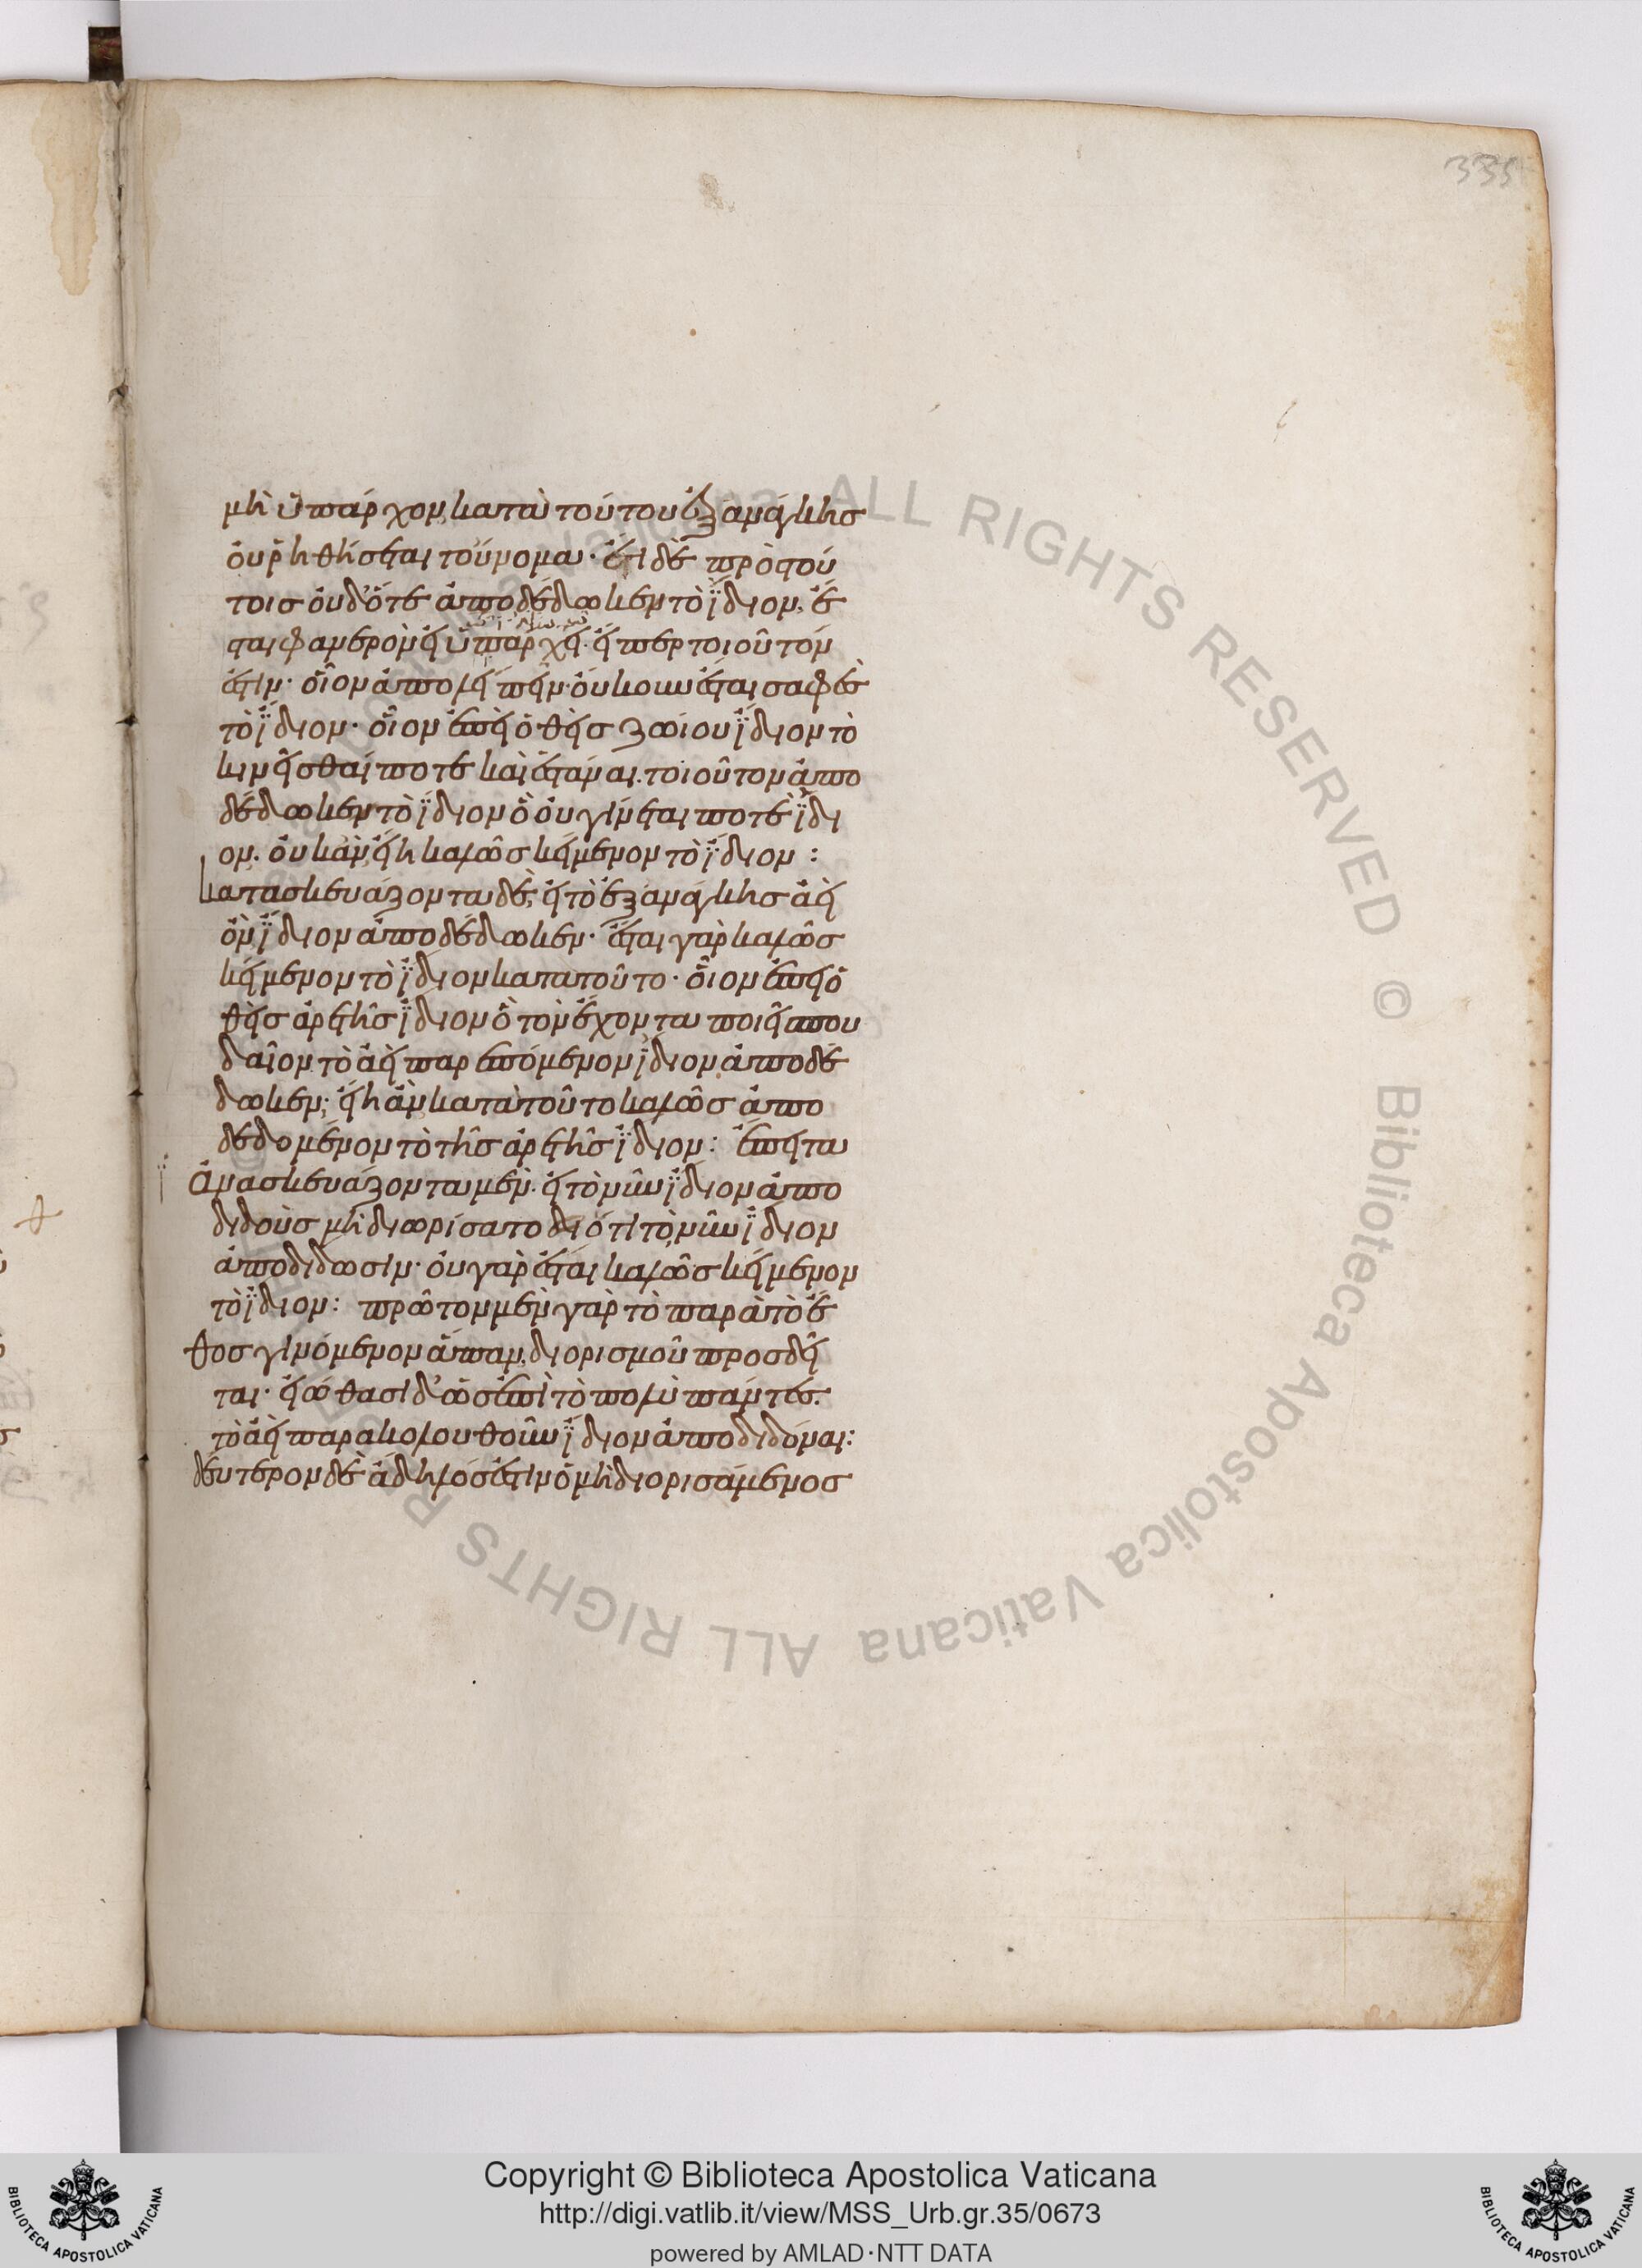 335
μὴ ὑπάρχον, κατὰ τούτου ἐξ ἀνάγκης
οὐ ῥηθήσεται τοὔνομα· ἔτι δὲ πρὸς τού
τοις οὐδ' ὅτε ἀποδέδωκεν τὸ ἴδιον, ἔ
σται φανερὸν εἰ ὑπάρχει· εἴπερ τοιοῦτόν
ἐστιν· οἷον ἀπολείπειν· οὔκουν ἔσται σαφὲς
τὸ ἴδιον· οἷον ἐπεὶ ὁ θεὶς ζώιου ἴδιον τὸ
κινεῖσθαί ποτε καὶ ἑστάναι. τοιοῦτον ἀπο
δέδωκεν τὸ ἴδιον ὃ οὐ γίνεταί ποτε ἴδι
ον. οὐκ ἂν εἴη καλῶς κείμενον τὸ ἴδιον :
κατασκευάζοντα δὲ, εἰ τὸ ἐξ ἀνάγκης ἀεὶ
ὂν ἴδιον ἀποδέδωκεν· ἔσται γὰρ καλῶς
κείμενον τὸ ἴδιον κατὰ τοῦτο· οἷον ἐπεὶ ὁ
θεὶς ἀρετῆς ἴδιον ὃ τὸν ἔχοντα ποιεῖ σπου
δαῖον, τὸ ἀεὶ παρεπόμενον ἴδιον ἀποδέ
δωκεν, εἴη ἂν κατὰ τοῦτο καλῶς ἀπο
δεδομένον τὸ τῆς ἀρετῆς ἴδιον : ἔπειτα
ἀνασκευάζοντα μὲν. εἰ τὸ νῦν ἴδιον ἀπο
διδοὺς μὴ διωρίσατο διότι τὸ νῦν ἴδιον
ἀποδίδωσιν· οὐ γὰρ ἔσται καλῶς κείμενον
τὸ ἴδιον : πρῶτον μὲν γὰρ τὸ παρὰ τὸ ἔ
θος γινόμενον ἅπαν, διορισμοῦ προσδεῖ
ται· εἰώθασι δ' ὡς ἐπὶ τὸ πολὺ πάντες.
τὸ ἀεὶ παρακολουθοῦν ἴδιον ἀποδιδόναι :
δεύτερον δὲ ἄδηλός ἐστιν ὁ μὴ διορισάμενος
Copyright © Biblioteca Apostolica Vaticana
http://digi.vatlib.it/view/MSS_Urb.gr.35/0673
powered by AMLAD·NTT DATA
BIBLIOTECA APOSTOLICA VATICANA
BIBLIOTECA APOSTOLICA VATICANA
ALL RIGHTS RESERVED © Biblioteca Apostolica Vaticana